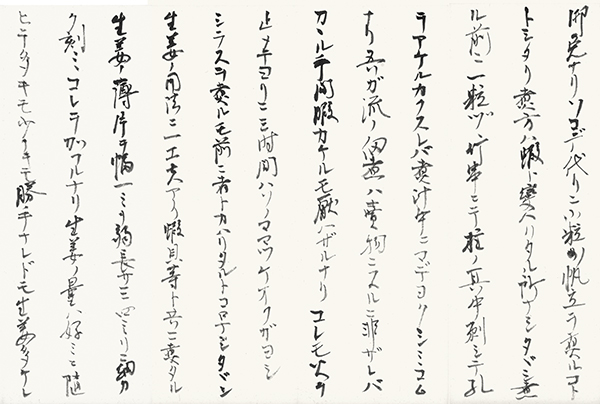 御免ナリソコデ代リニ小粒ノ帆立ヲ煮ルコト
トシタリ煮方ハ蝦ト変ハリタル所ナシタダシ煮
ル前ニ一粒ヅツ竹串ニテ柱ノ真中刺シテ孔
ヲアケルカクスレバ煮汁中ニマデヨクシミコム
ナリ吾ガ流ノ佃煮ハ売物ニスルニ非ザレバ
カカル手間暇カケルモ厭ハザルナリコレモ火ヲ
止メテヨリ二三時間ハソノママツケオクガヨシ
シラスヲ煮ルモ前二者トカハリタルトコロナシタダシ
生姜ノ用法ニ一工夫アリ蝦貝等ト共ニ煮タル
生姜ノ薄片ヲ幅一ミリ弱長サ三四ミリニ細カ
ク刻ミコレヲ加フルナリ生姜ノ量ハ好ミニ随
ヒテ多キモ少クキモ勝手ナレドモ生姜多ケレ